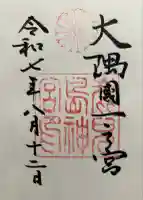 大隅國一之宮
島神
令和七年八月十二日